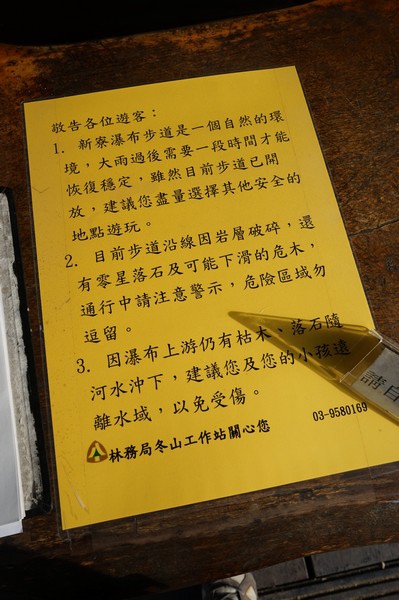 敬告各位遊客：
1. 新寮瀑布步道是一個自然的環
境，大雨過後需要一段時間才能
恢復穩定，雖然目前步道已開
放，建議您盡量選擇其他安全的
地點遊玩。
2. 目前步道沿線因岩層破碎，還
有零星落石及可能下滑的危木，
通行中請注意警示，危險區域勿
逗留。
3. 因瀑布上游仍有枯木、落石隨
河水沖下，建議您及您的小孩遠
離水域，以免受傷。
03-9580169
林務局冬山工作站關心您
請自